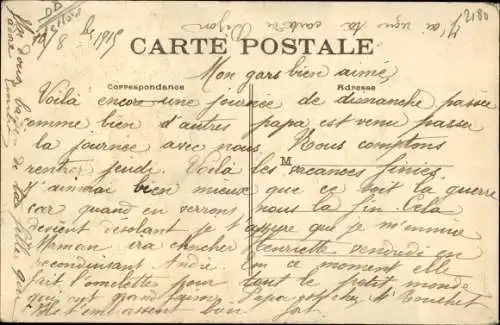 2180
J'ai reçu ta carte de Dijon
8 1915
CARTE POSTALE
Correspondance
Adresse
M
Mon gars bien aimé,
Voilà encore une journée de dimanche passée
comme bien d'autres papa est venu passer
la journée avec nous. Nous comptons
rentrer jeudi. Voilà les vacances finies
J'aimerai bien mieux que ce soit la guerre
car quand en verrons nous la fin. Cela
devient désolant je t'assure que je m'ennuie
Maman ira chercher Henriette vendredi en
reconduisant André. En ce moment elle
fait l'omelette pour tout le petit monde
qui ont grand faim. Papa est chez Mr Bouchet
Ils t'embrassent bon